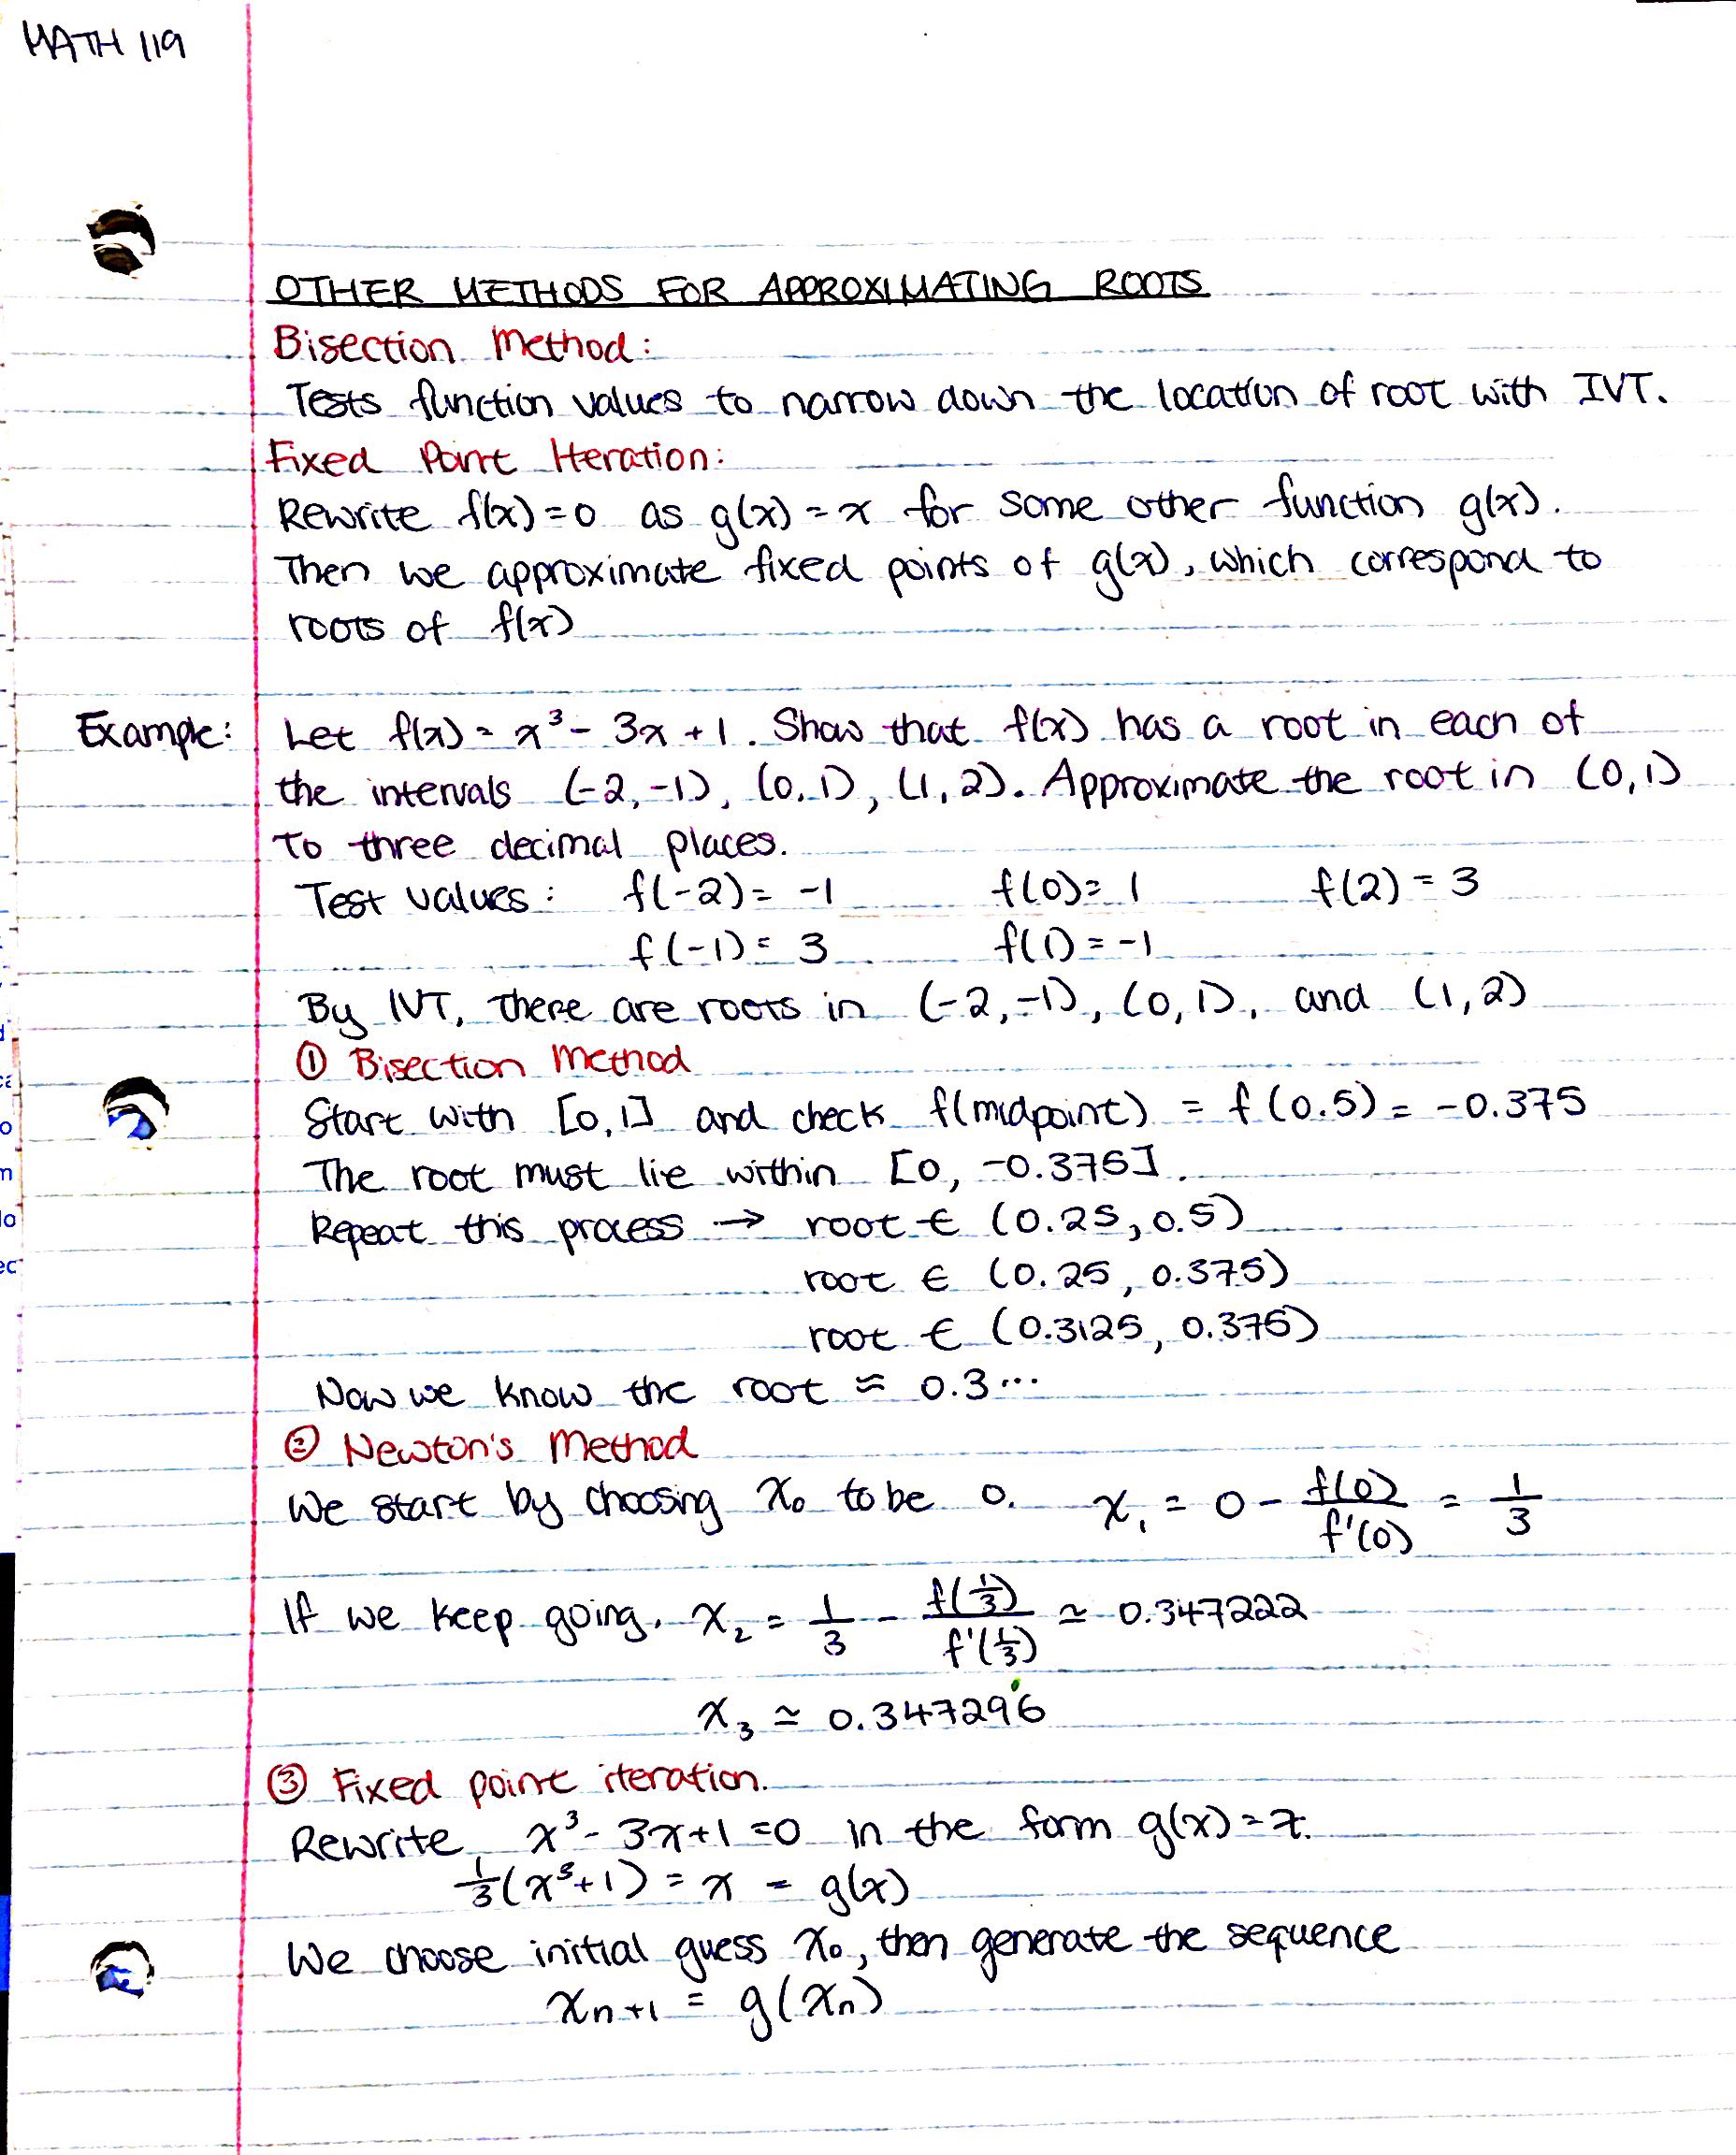 MATH 119
OTHER METHODS FOR APPROXIMATING ROOTS
Bisection Method:
Tests function values to narrow down the location of root with IVT.
Fixed Point Iteration:
Rewrite f(x)=0 as g(x)=x for some other function g(x).
Then we approximate fixed points of g(x), which correspond to
roots of f(x)
Example: Let f(x) = x³- 3x +1. Show that f(x) has a root in each of
the intervals (-2,-1), (0,1), (1,2). Approximate the root in (0,1)
to three decimal places.
Test values: f(-2)= -1 f(0)= 1 f(2) = 3
f(-1)= 3 f(1) = -1
By IVT, there are roots in (-2,-1), (0,1), and (1,2)
① Bisection Method
Start with [0,1] and check f(midpoint) = f(0.5)= -0.375
The root must lie within [0, -0.375].
Repeat this process → root ∈ (0.25, 0.5)
root ∈ (0.25, 0.375)
root ∈ (0.3125, 0.375)
Now we know the root ≈ 0.3...
② Newton's Method
We start by choosing x₀ to be 0. x₁ = 0 - f(0)/f'(0) = 1/3
If we keep going, x₂ = 1/3 - f(1/3)/f'(1/3) ≃ 0.347222
x₃ ≃ 0.347296
③ Fixed point iteration.
Rewrite x³- 3x+1=0 in the form g(x)=x.
1/3(x³+1) = x = g(x)
We choose initial guess x₀, then generate the sequence
xₙ₊₁ = g(xₙ)